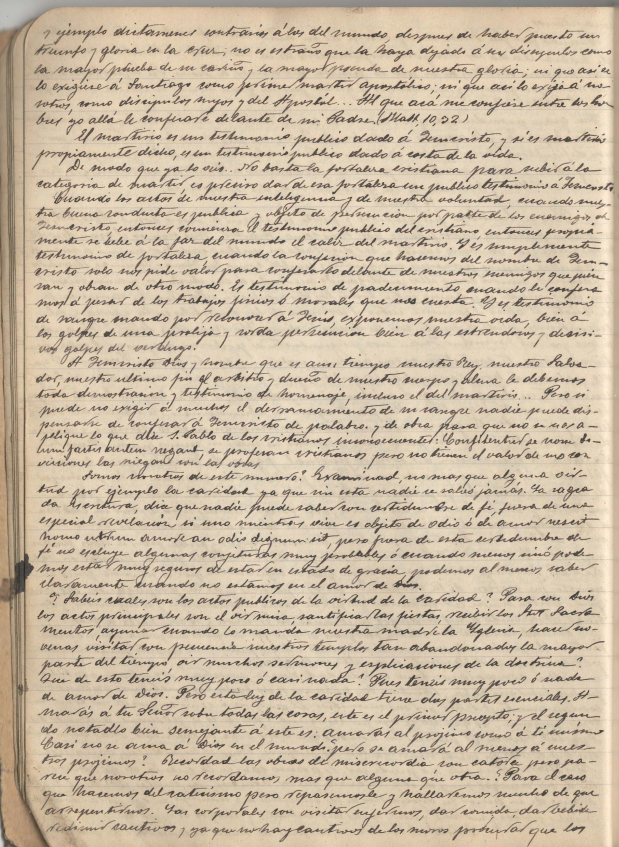 y ejemplo dictamenes contrarios á los del mundo, despues de haber puesto su
triunfo y gloria en la cruz; no es estraño que la haya dejado á sus discipulos como
la mayor prueba de su cariño y la mayor prenda de nuestra gloria; ni que asi se
lo exigiese á Santiago como primer martir apostolico; ni que asi lo exija á no
sotros como discipulos suyos y del Apostol... Al que acá me confiese entre los hom
bres yo allá le confesaré delante de mi Padre. (Matt. 10, 32)
El martirio es un testimonio publico dado á Jesucristo, y si es martirio
propiamente dicho, es un testimonio publico dado á costa de la vida.
De modo que ya lo veis. No basta la fortaleza cristiana para subir á la
categoria de martir, es preciso dar de esa fortaleza un publico testimonio á Jesucristo
Cuando los actos de nuestra inteligencia y de nuestra voluntad, cuando nues
tra buena conducta es publica y objeto de persecucion por parte de los enemigos de
Jesucristo, entonces comienza el testimonio publico del cristiano entonces propia
mente se bebe á la faz del mundo el caliz del martirio. Y es simplemente
testimonio de fortaleza, cuando la confesion que hacemos del nombre de Jesu
cristo solo nos pide valor para confesarlo delante de nuestros enemigos que pien
san y obran de otro modo. Es testimonio de padecimiento cuando le confesa
mos á pesar de los trabajos fisicos ó morales que nos cuesta. Y es testimonio
de sangre cuando por confesar á Jesús, exponemos nuestra vida, bien á
los golpes de una prolija y sorda persecucion bien á los estrendosos y decisi
vos golpes del verdugo.
A Jesucristo Dios y hombre que es á un tiempo nuestro Rey, nuestro Salva
dor, nuestro ultimo fin el arbitro y dueño de nuestro cuerpo y alma le debemos
toda demostracion y testimonio de homenaje, incluso el del martirio... Pero si
puede no exigir á muchos el derramamiento de su sangre nadie puede dis
pensarse de confesar á Jesucristo de palabra, y de obra para que no se nos a
plique lo que dice S. Pablo de los cristianos inconsecuentes: Confitentur se nosse De
um factis autem negant, se profesan cristianos pero no tienen el valor de sus con
vicciones las niegan con las obras
Somos nosotros de este numero? Examinad, no mas que alguna vir
tud por ejemplo la caridad ya que sin esta nadie se salvó jamás. La sagra
da escritura, dice que nadie puede saber con certidumbre de fé, fuera de una
especial revelacion si uno mientras vive es objeto de odio ó de amor nescit
homo utrum amore an odio dignus sit pero fuera de esta certidumbre de
fé no escluye algunas conjeturas muy probables ó cuando menos sinó pode
mos estar muy seguros de estar en estado de gracia, podemos al menos saber
claramente cuando no estamos en el amor de Dios.
¿Sabeis cuales son los actos publicos de la virtud de la caridad? Para con Dios
los actos principales son el oir misa, santificar las fiestas, recibir los Stos Sacra
mentos, ayunar cuando lo manda nuestra madre la Yglesia, hacer no
venas visitar con frecuencia nuestros templos tan abandonados la mayor
parte del tiempo oir muchos sermones y esplicaciones de la doctrina?
Que de esto teneis muy poco ó casi nada? Pues teneis muy poco ó nada
de amor de Dios. Pero esta ley de la caridad tiene dos partes esenciales. A-
marás á tu Señor sobre todas las cosas, este es el primer precepto; y el segun
do notadlo bien semejante á este es: amarás al projimo como á ti mismo
Casi no se ama á Dios en el mundo; pero se amará al menos á nues
tros projimos? Recordad las obras de misericordia son catorce pero pa-
rece que nosotros no recordamos mas que alguna que otra. ? Para el caso
que hacemos del catecismo pero repasemosle y hallaremos mucho de que
arrepentirnos. Las corporales son visitar enfermos, dar comida, dar bebida
redimir cautivos, y ya que no hay cautivos de los moros procurar que los